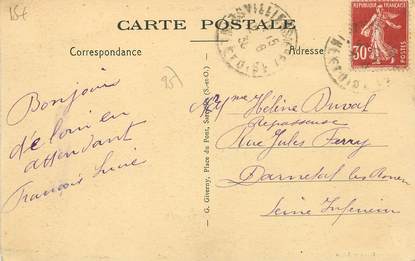 15t
CARTE POSTALE
Correspondance
Adresse
RÉPUBLIQUE FRANÇAISE
30c
POSTES
95/
Bonjour
de loin en
attendant
François Lucie
G. Giverny, Place du Pont, (S.-et-O.)
Mme Hélène Duval
Repasseuse
Rue Jules Ferry
Darnetal les Rouen
Seine Inférieure